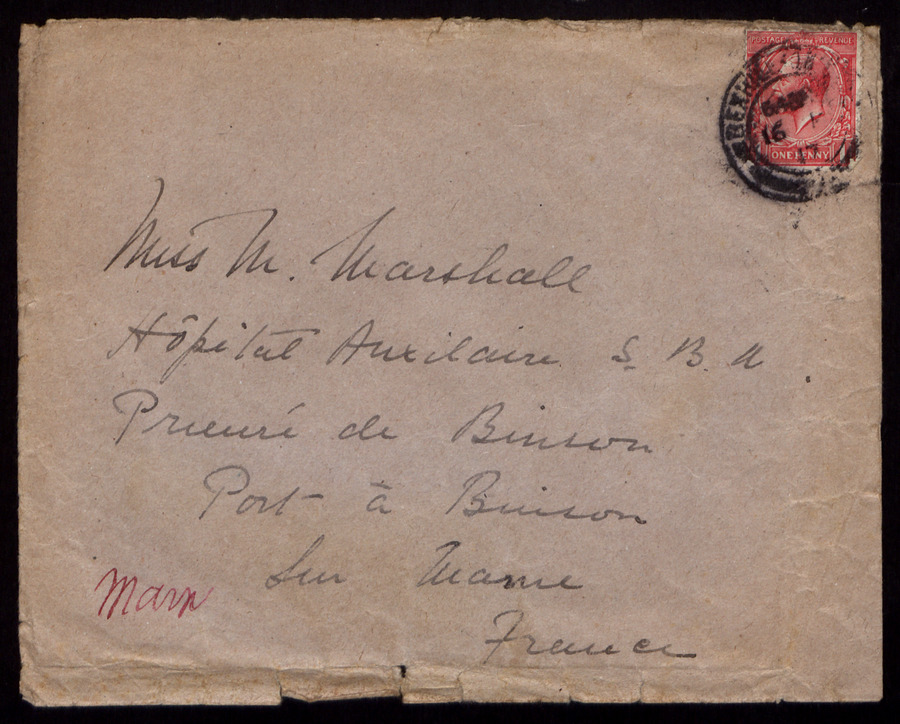 POSTAGE REVENUE
16
ONE PENNY
Miss M. Marshall
Hôpital Auxilaire S. B. A
Prieuré de Binson
Port à Binson
Sur Marne
Marn
France